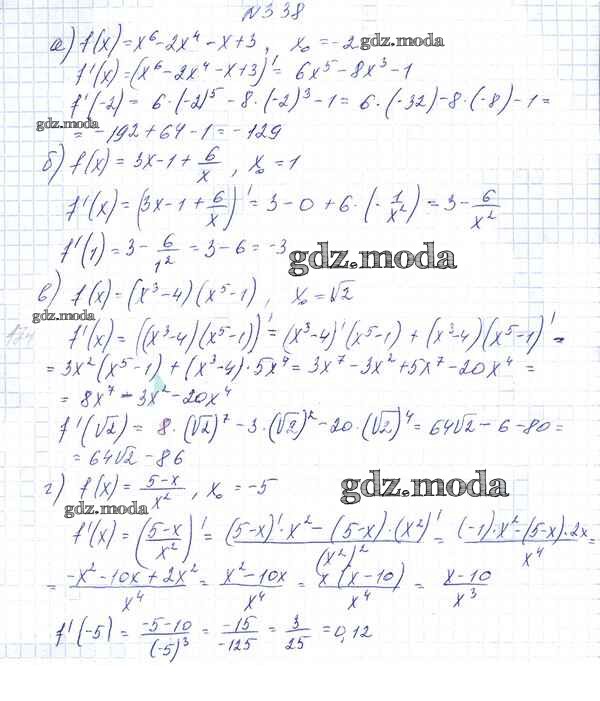 №338
а) f(x) = x⁶ - 2x⁴ - x + 3, x₀ = -2 gdz.moda
f'(x) = (x⁶ - 2x⁴ - x + 3)' = 6x⁵ - 8x³ - 1
f'(-2) = 6·(-2)⁵ - 8·(-2)³ - 1 = 6·(-32) - 8·(-8) - 1 =
gdz.moda
= -192 + 64 - 1 = -129
б) f(x) = 3x - 1 + 6/x, x₀ = 1
f'(x) = (3x - 1 + 6/x)' = 3 - 0 + 6·(-1/x²) = 3 - 6/x²
f'(1) = 3 - 6/1² = 3 - 6 = -3 gdz.moda
в) f(x) = (x³ - 4)(x⁵ - 1), x₀ = √2
gdz.moda
f'(x) = ((x³ - 4)(x⁵ - 1))' = (x³ - 4)'(x⁵ - 1) + (x³ - 4)(x⁵ - 1)' =
= 3x²(x⁵ - 1) + (x³ - 4)·5x⁴ = 3x⁷ - 3x² + 5x⁷ - 20x⁴ =
= 8x⁷ - 3x² - 20x⁴
f'(√2) = 8·(√2)⁷ - 3·(√2)² - 20·(√2)⁴ = 64√2 - 6 - 80 =
= 64√2 - 86
г) f(x) = (5-x)/x², x₀ = -5 gdz.moda
gdz.moda
f'(x) = ((5-x)/x²)' = ((5-x)'·x² - (5-x)·(x²)')/(x²)² = ((-1)·x² - (5-x)·2x)/x⁴ =
= (-x² - 10x + 2x²)/x⁴ = (x² - 10x)/x⁴ = x(x-10)/x⁴ = (x-10)/x³
f'(-5) = (-5-10)/(-5)³ = -15/-125 = 3/25 = 0,12
gdz.moda